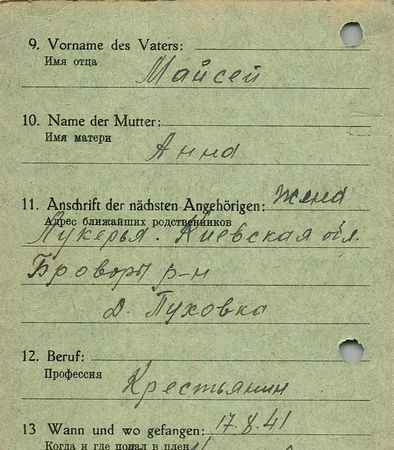 9. Vorname des Vaters:
Имя отца
Майсей
10. Name der Mutter:
Имя матери
Анна
11. Anschrift der nächsten Angehörigen: жена
Адрес ближайших родственников
Лукерья. Киевская обл.
Бровары р-н
д. Пуховка
12. Beruf:
Профессия
Крестьянин
13 Wann und wo gefangen: 17.8.41
Когда и где попал в плен